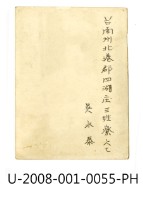 台南州北港郡四湖庄三姓寮人
吳永恭
U-2008-001-0055-PH